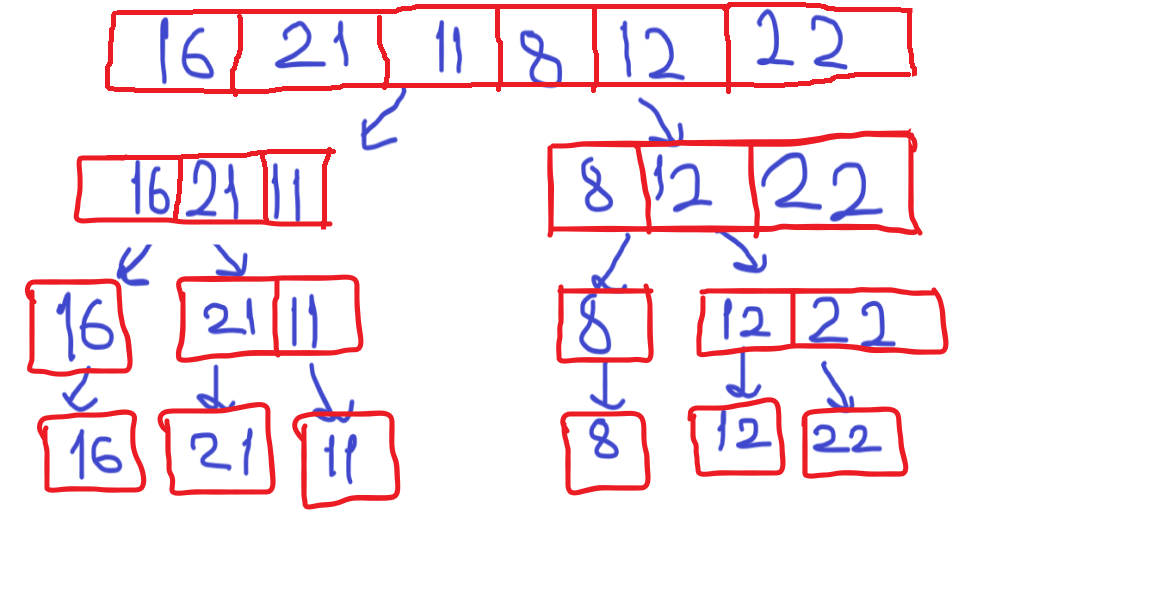 16 21 11 8 12 22
16 21 11 8 12 22
16 21 11 8 12 22
16 21 11 8 12 22